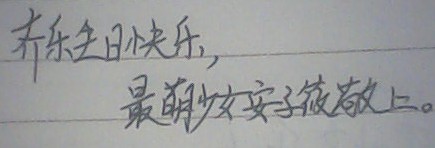 乔乐生日快乐,
最萌少女安子筱敬上。